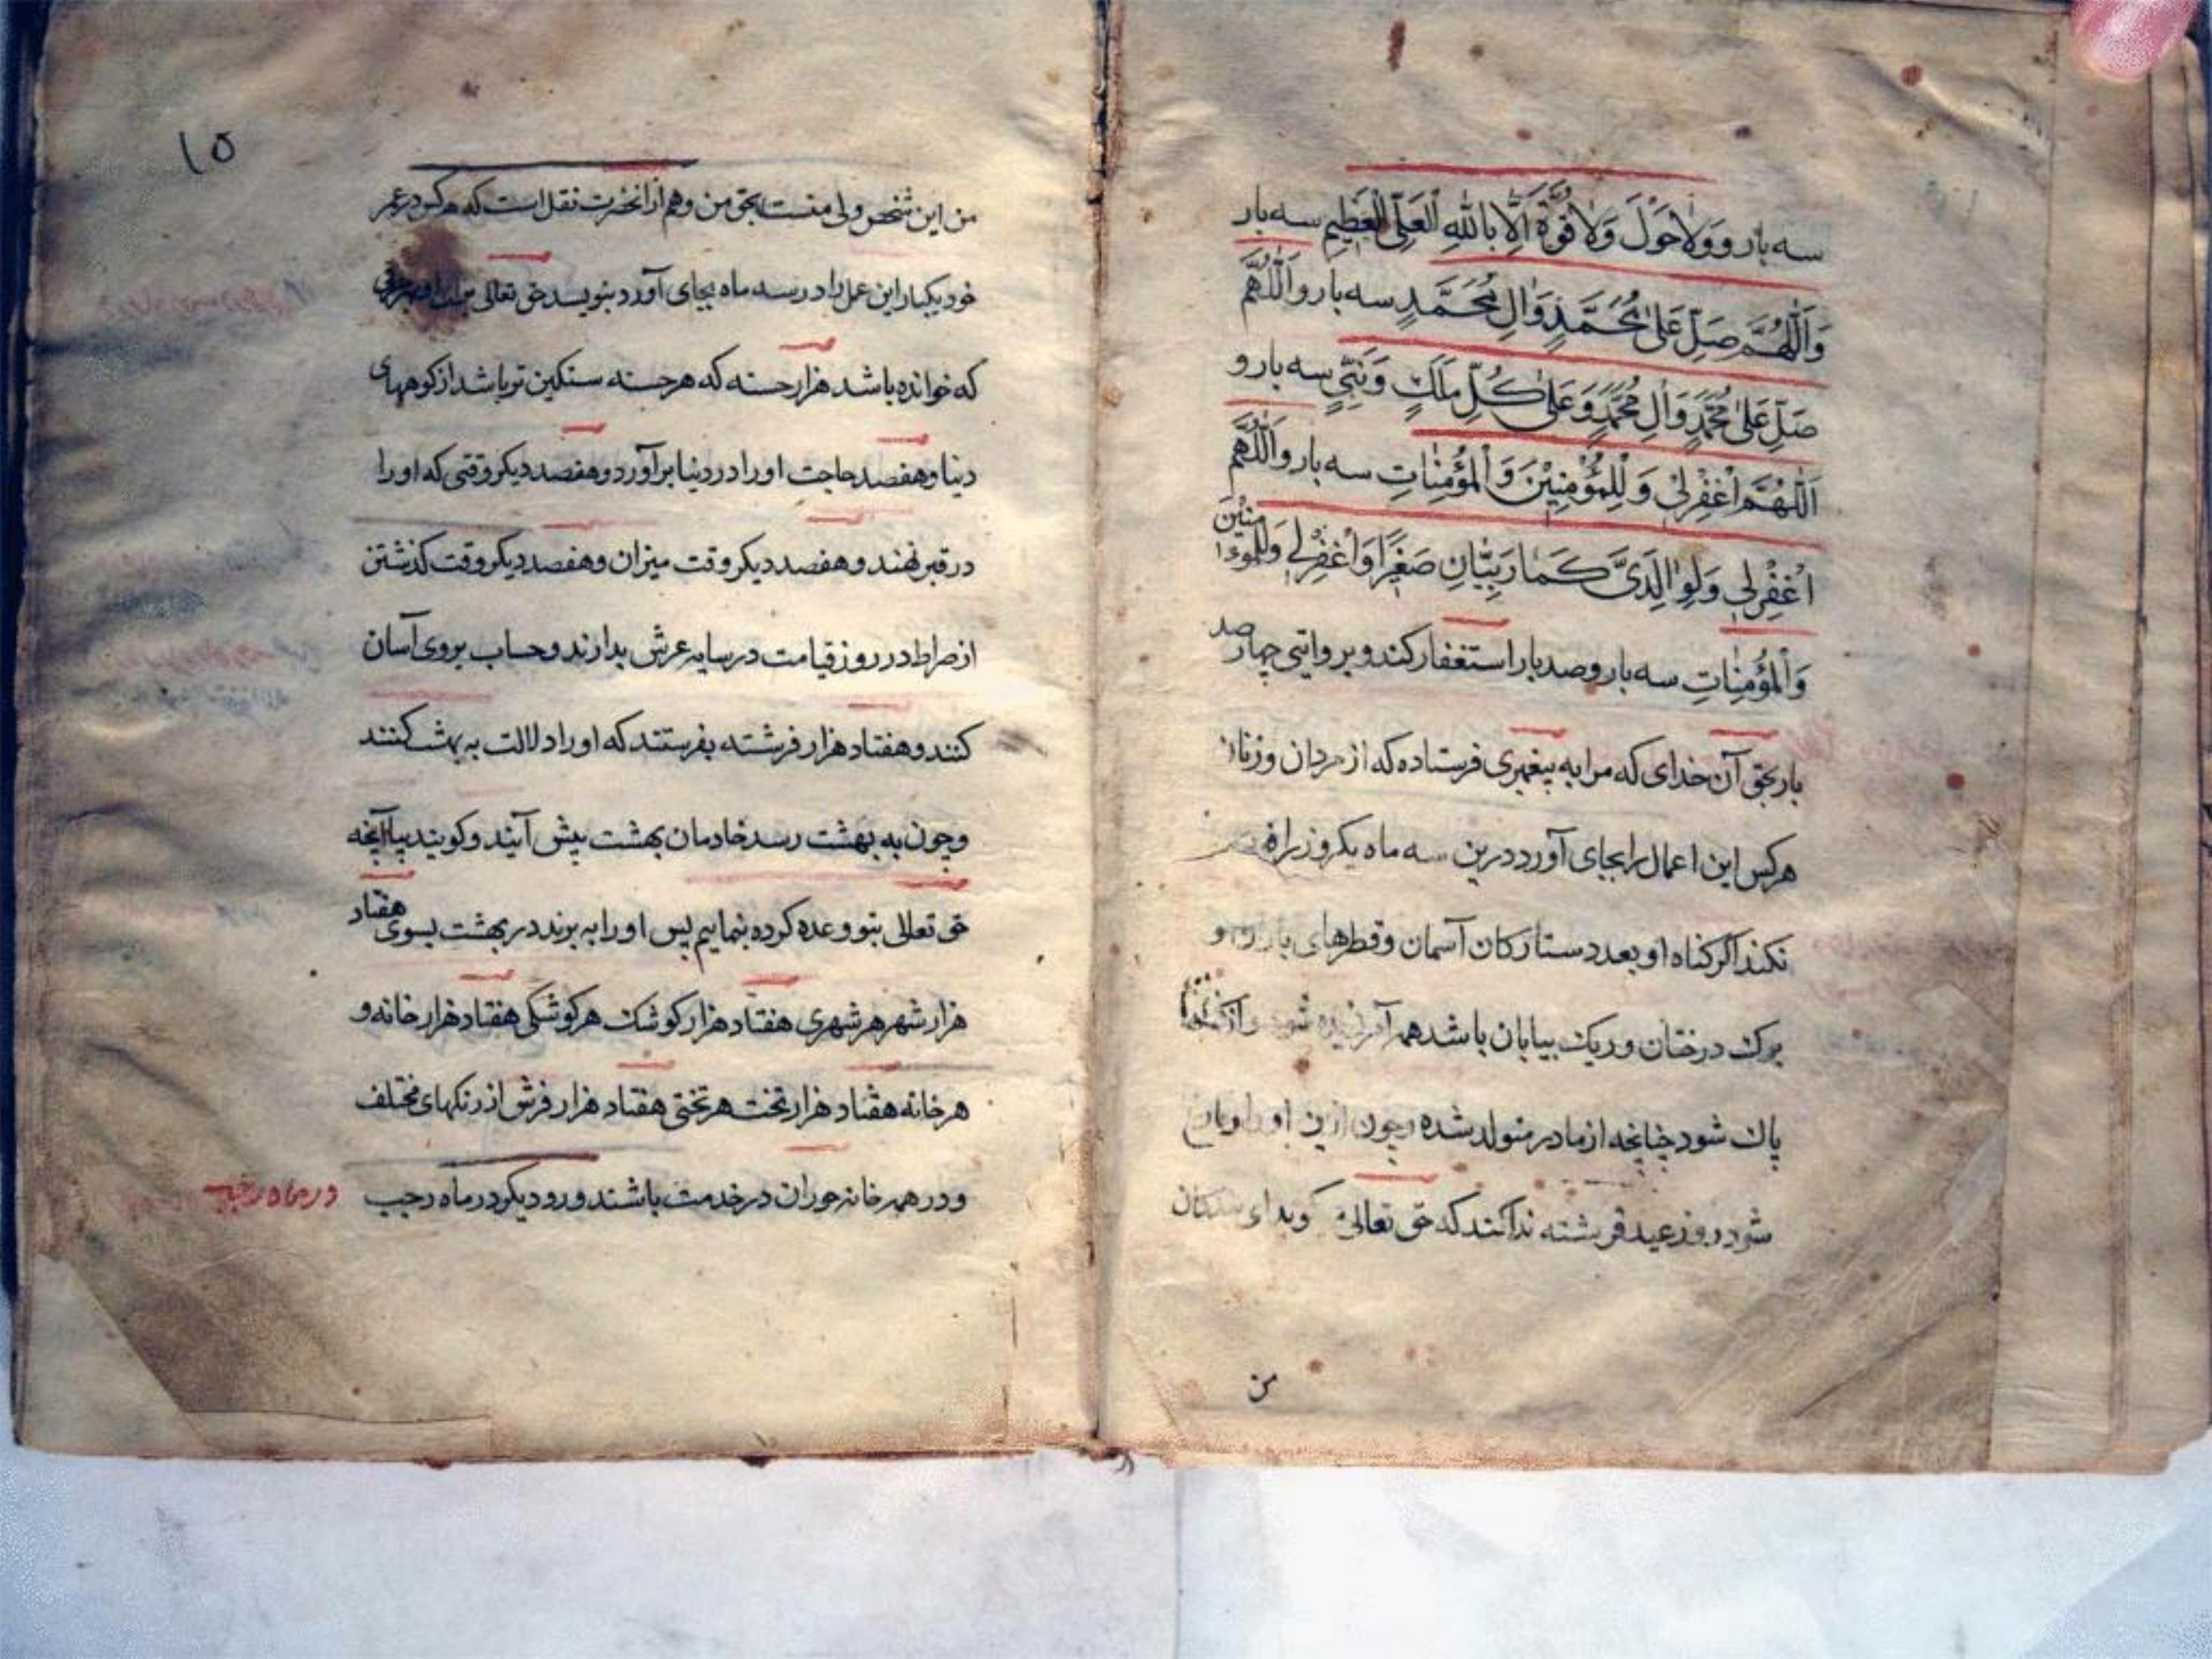 سه بار و ولا حَوْلَ وَلا قُوَّةَ اِلّا بِاللهِ الْعَلِيِّ الْعَظِيمِ سه بار
وَاَللّهُمَّ صَلِّ عَلىٰ مُحَمَّدٍ وَالِ مُحَمَّدٍ سه بار و اَللّهُمَّ
صَلِّ عَلىٰ مُحَمَّدٍ وَالِ مُحَمَّدٍ وَعَلىٰ كُلِّ مَلَكٍ وَنَبِيٍّ سه بار و
اَللّهُمَّ اغْفِرْلِي وَ لِلْمُؤْمِنِيْنَ وَ الْمُؤْمِنٰاتِ سه بار و اَللّهُمَّ
اغْفِرْلِي وَلِوٰالِدَيَّ كَمٰا رَبَّيٰانِ صَغِيرًا وَاغْفِرْلِي وَلِلْمُوءْمِنِيْنَ
وَالْمُؤْمِنٰاتِ سه بار و صد بار استغفار کند و بروایتی چهار صد
بار بحق آن خدای که مرا به پیغمبری فرستاده که از مردان و زنان
هرکس این اعمال را بجای آورد درین سه ماه یکروز را
نکند اکر کناه او بعدد ستارکان آسمان و قطرهای باران و
برک درختان و ریک بیابان باشد همه آمرزیده شود و از کناهان
پاک شود چنانچه از مادر متولد شده و چون ازین
شود روز عید فرشته ندا کند که حق تعالی کوید ای بندکان
من
۱۵
من این شخص ولی منست بحق من و هم از آنحضرت نقل است که هرکس در عمر
خود یکبار این عمل را در سه ماه بجای آورد بنویسد حق تعالی برای او بهر حرفی
که خوانده باشد هزار حسنه که هر حسنه سنکین تر باشد از کوههای
دنیا و هفصد حاجت او را در دنیا برآورد و هفصد دیکر وقتی که او را
در قبر نهند و هفصد دیکر وقت میزان و هفصد دیکر وقت کذشتن
از صراط در روز قیامت در سایه عرش بدارند و حساب بروی آسان
کنند و هفتاد هزار فرشته بفرستند که او را دلالت به بهشت کنند
و چون به بهشت رسد خادمان بهشت پیش آیند و کویند بیا آنچه
حق تعالی بتو وعده کرده بنماییم پس او را به برند در بهشت بسوی هفتاد
هزار شهر هر شهری هفتاد هزار کوشک هر کوشکی هفتاد هزار خانه و
هر خانه هفتاد هزار تخت هر تختی هفتاد هزار فرش از رنکهای مختلف
و در همه خانه حوران در خدمت باشند و رو دیکر در ماه رجب
در ماه رجب